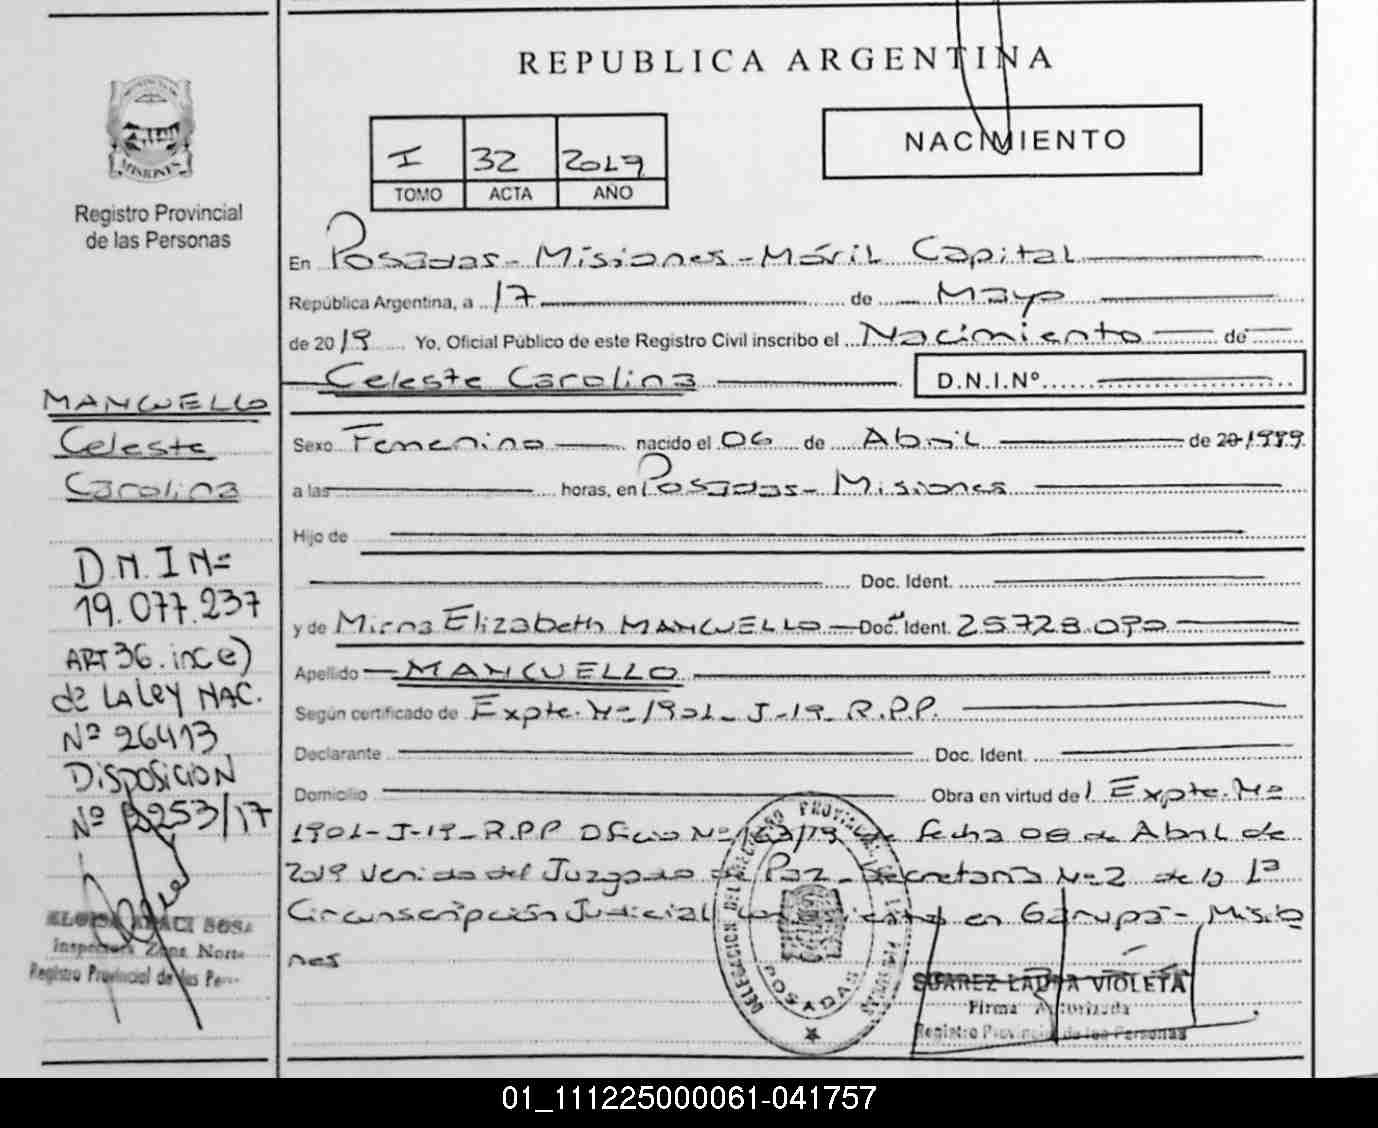 REPUBLICA ARGENTINA
NACIMIENTO
I 32 2019
TOMO ACTA AÑO
MISIONES
Registro Provincial
de las Personas
En Posadas - Misiones - Móvil Capital
República Argentina, a 17 de Mayo
de 2019 Yo, Oficial Público de este Registro Civil inscribo el Nacimiento de
Celeste Carolina D.N.I.Nº
Sexo Femenino nacido el 06 de Abril de 20 1999
a las horas, en Posadas - Misiones
Hijo de
Doc. Ident.
y de Mirna Elizabeth MANCUELLO Doc. Ident. 25.728.090
Apellido MANCUELLO
Según certificado de Expte. Nº 1901 - J-19- R.P.P.
Declarante Doc. Ident.
Domicilio Obra en virtud del Expte. Nº
1901-J-19-R.P.P Oficio Nº 163/19 de fecha 08 de Abril de
2019 venido del Juzgado de Paz - Secretaría Nº 2 de la 1ª
Circunscripción Judicial con en Garupá - Misio
nes
MANCUELLO
Celeste
Carolina
D.N.I Nº
19.077.237
ART 36. inc e)
de LA Ley NAC.
Nº 26413
DISPOSICION
Nº 2253/17
SOSA
Inspectora Zona Norte
Registro Provincial de las Per
DELEGACION DEL REGISTRO PROVINCIAL DE LAS PERSONAS
POSADAS
SUAREZ LAURA VIOLETA
Firma Autorizada
Registro Provincial de las Personas
01_111225000061-041757